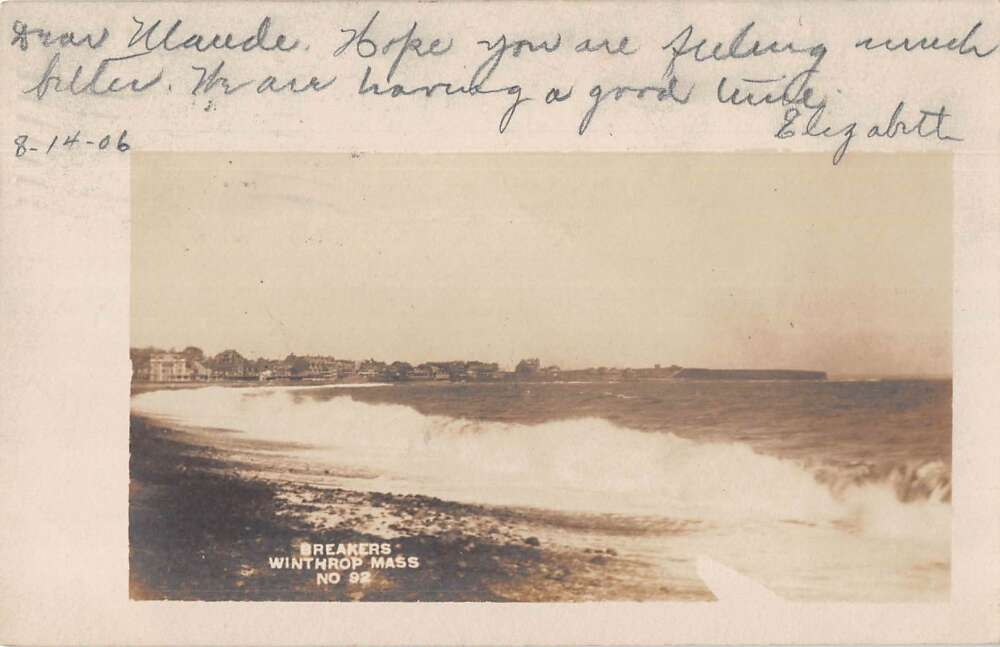 Dear Maude. Hope you are feeling much
better. We are having a good time.
Elizabeth
8-14-06
BREAKERS
WINTHROP MASS
NO 92